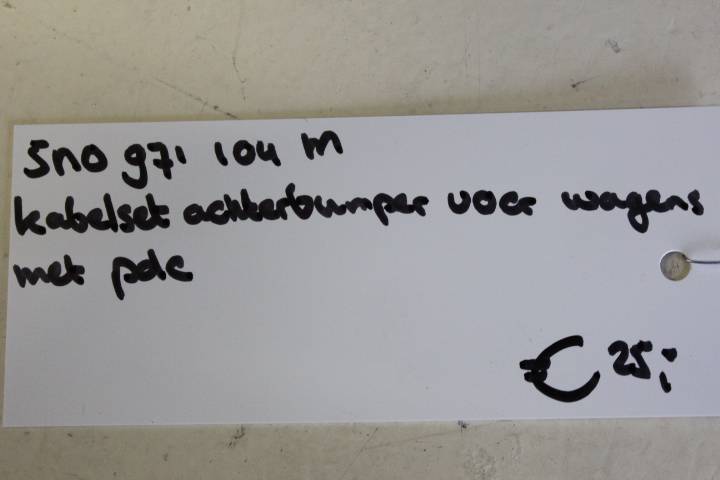 5no 971 104 m
kabelset achterbumper voor wagens
met pdc
€ 25,-